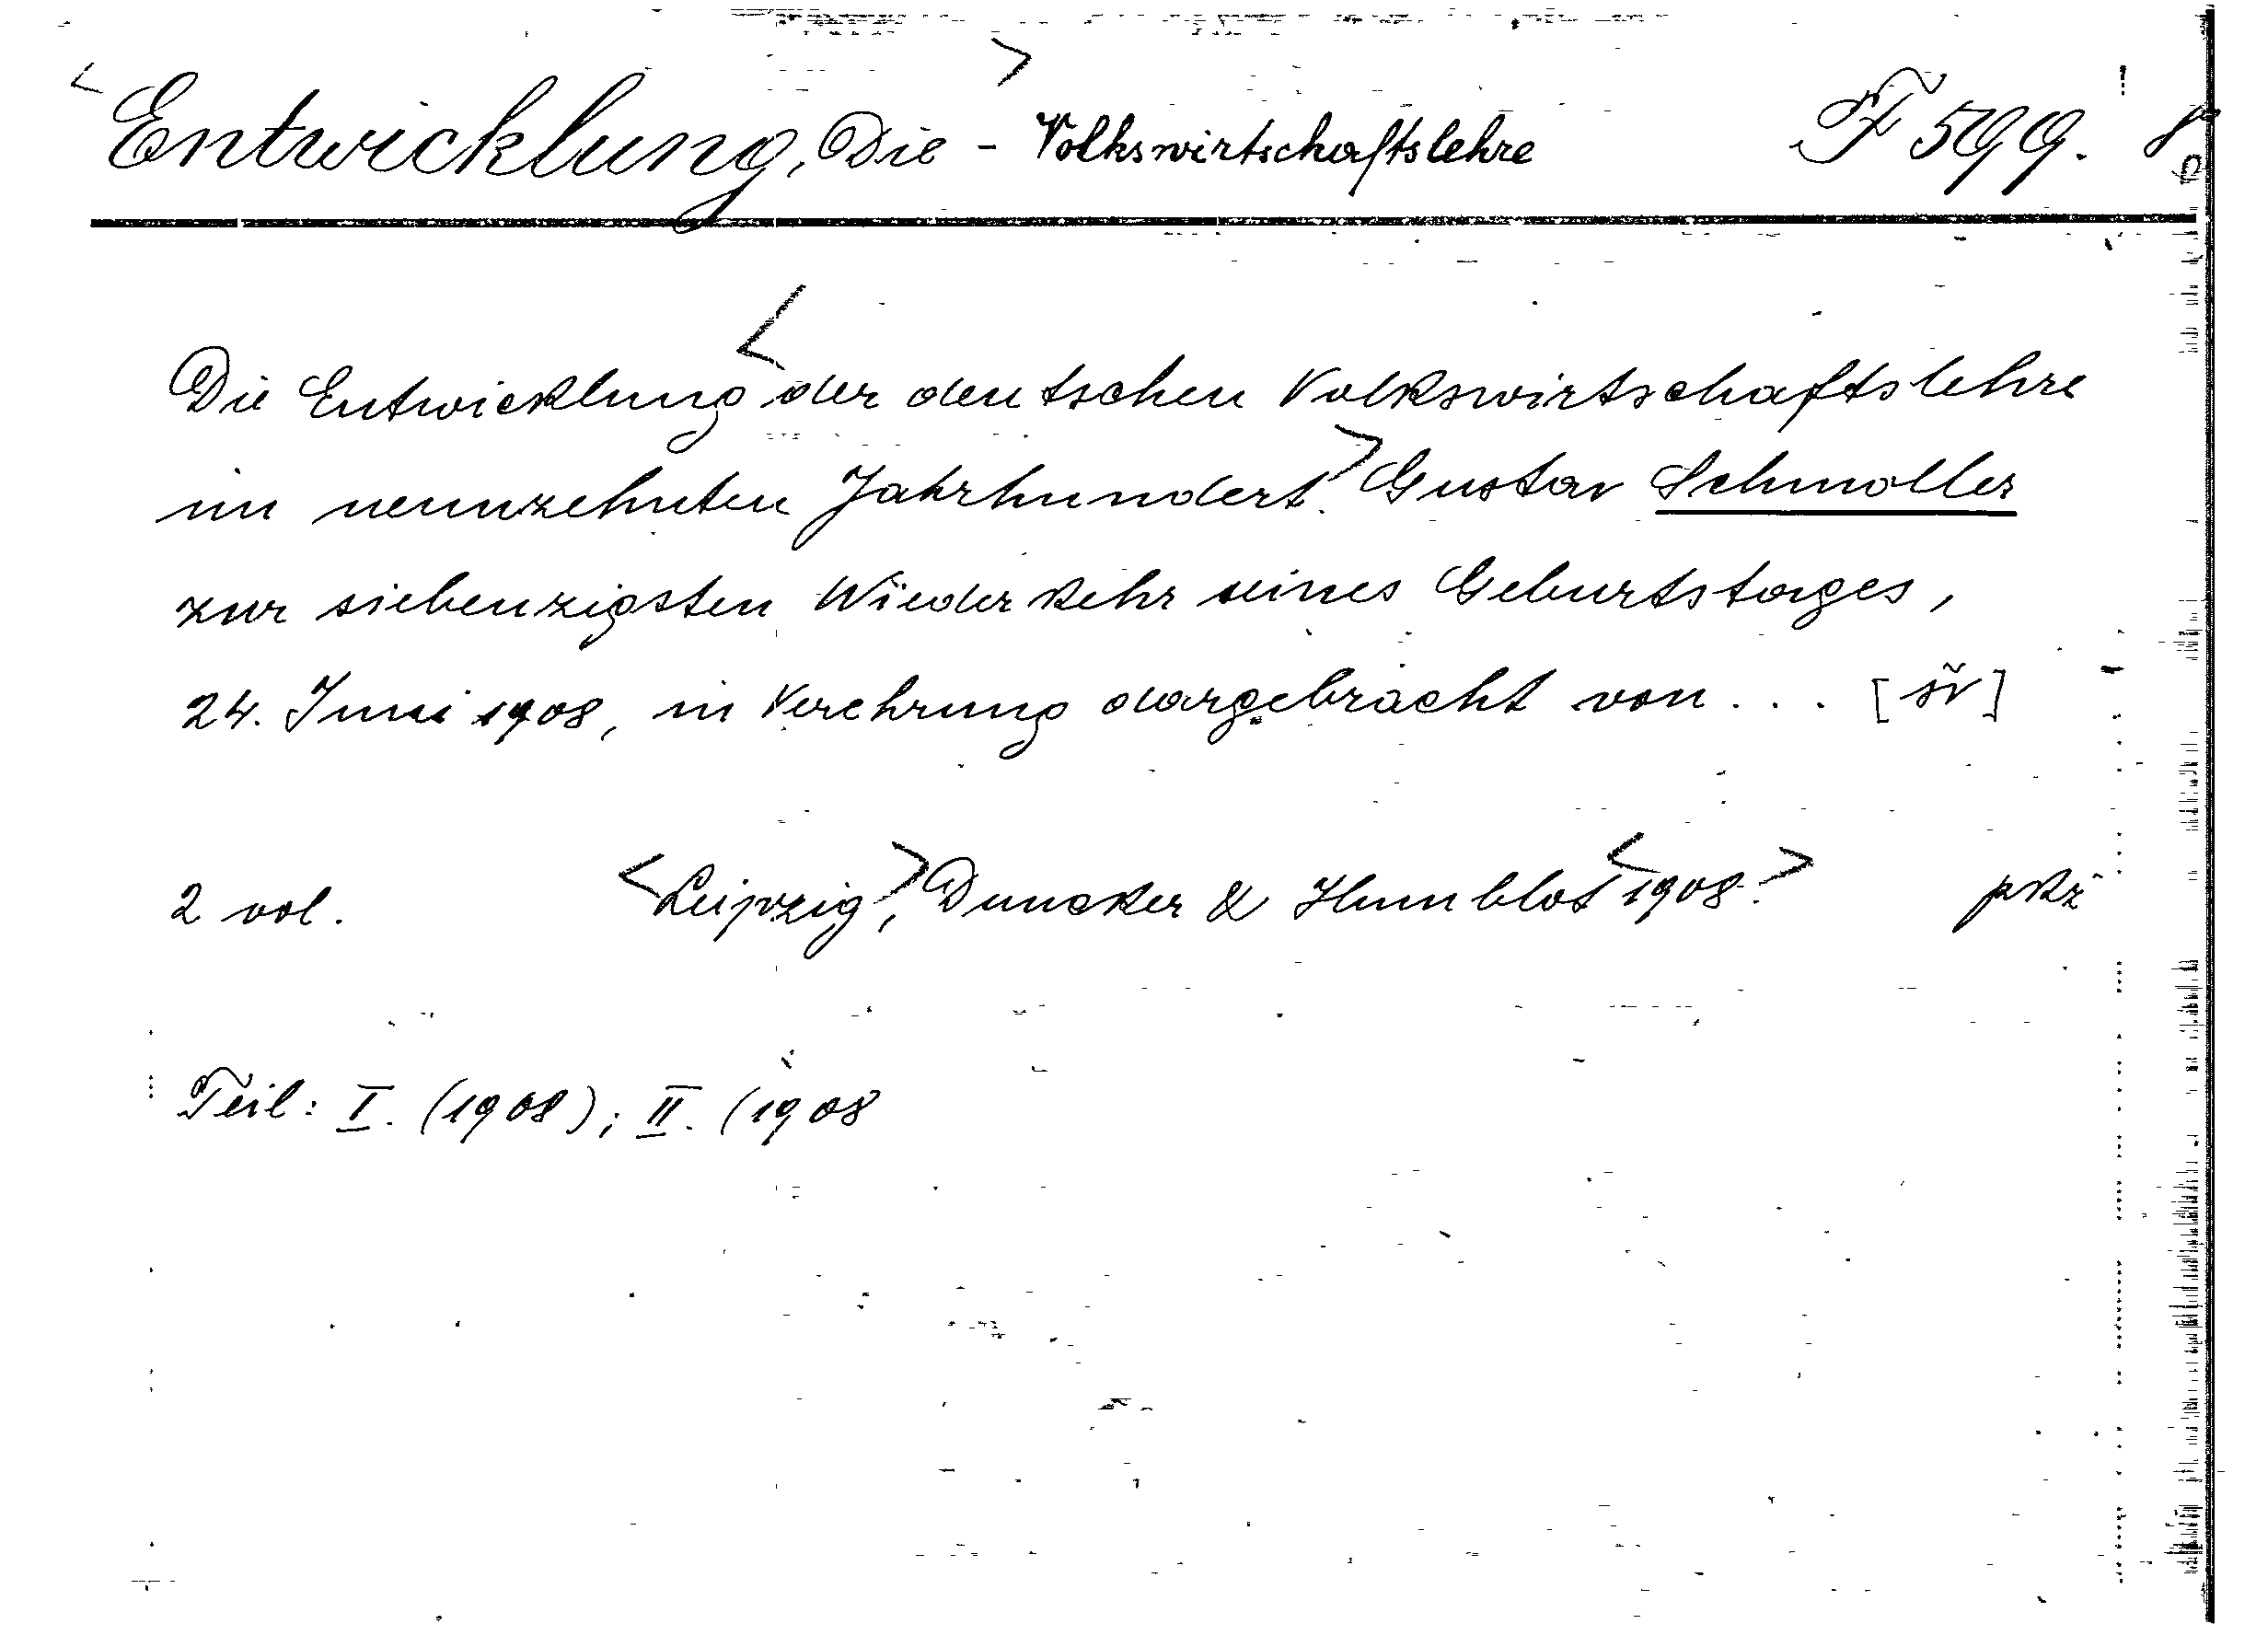 <Entwicklung, Die -> Volkswirtschaftslehre F 599.
Die Entwicklung <der deutschen Volkswirtschaftslehre
im neunzehnten Jahrhundert.> Gustav Schmoller
zur siebenzigsten Wiederkehr seines Geburtstages,
24. Juni 1908, in Verehrung dargebracht von... [šv]
2 vol. <Leipzig,> Duncker & Humblot <1908.> pkž
Teil: I. (1908); II. (1908